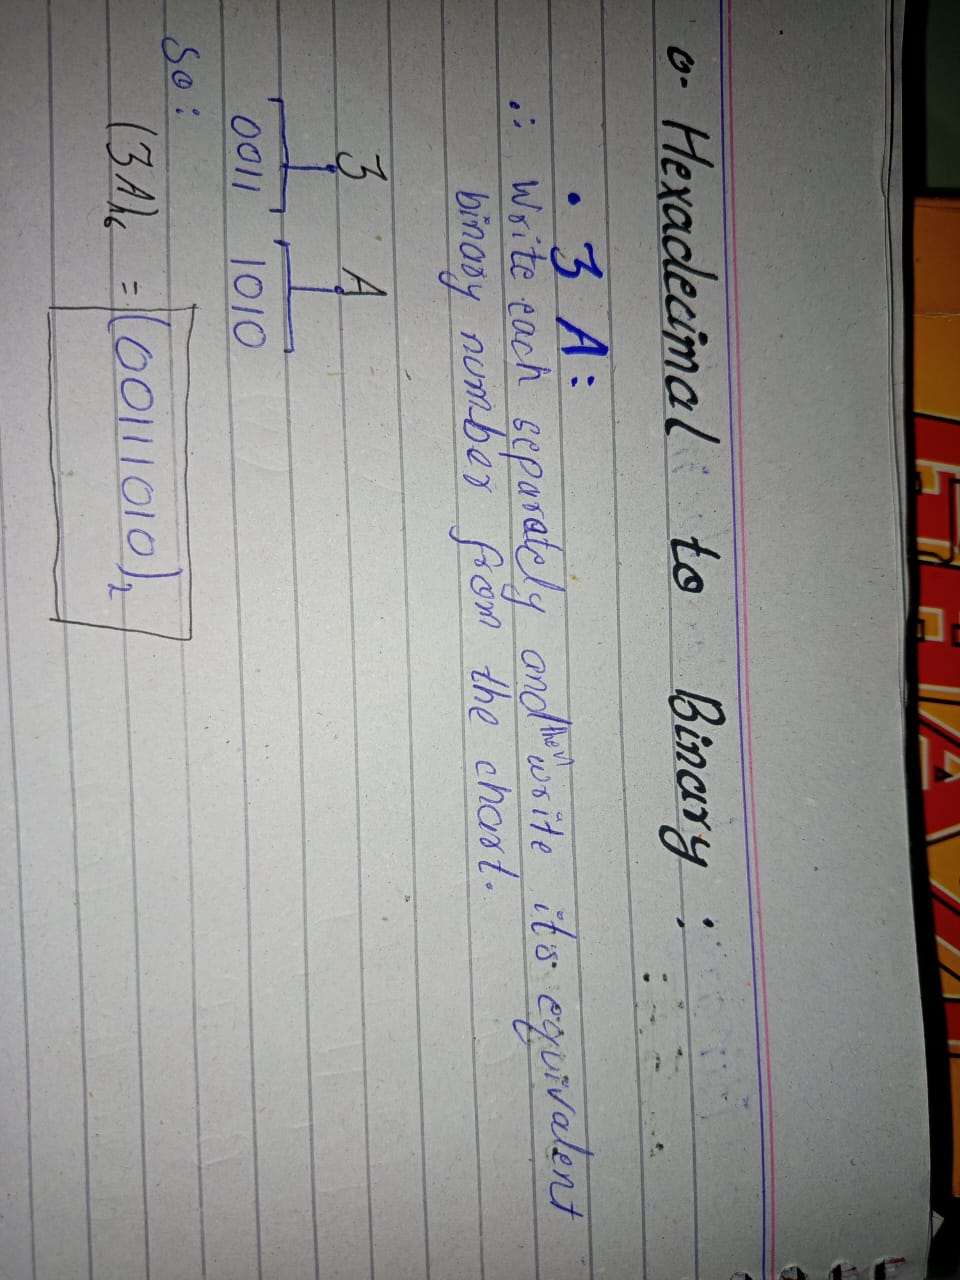 o- Hexadecimal to Binary :
• 3 A:
∴ Write each separately and then write it's equivalent
binary number from the chart.
3 A
0011 1010
So:
(3A)16 = (00111010)2